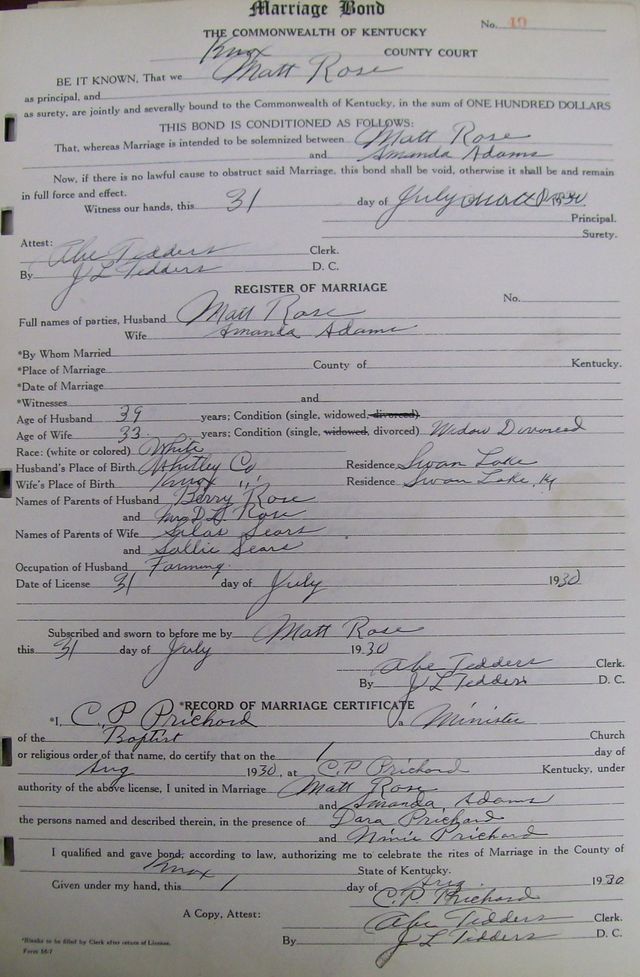 Marriage Bond
No. 19
THE COMMONWEALTH OF KENTUCKY
Knox COUNTY COURT
BE IT KNOWN, That we Matt Rose
as principal, and
as surety, are jointly and severally bound to the Commonwealth of Kentucky, in the sum of ONE HUNDRED DOLLARS
THIS BOND IS CONDITIONED AS FOLLOWS:
That, whereas Marriage is intended to be solemnized between Matt Rose
and Amanda Adams
Now, if there is no lawful cause to obstruct said Marriage, this bond shall be void, otherwise it shall be and remain
in full force and effect.
Witness our hands, this 31 day of July Matt Rose 1930
Principal.
Surety.
Attest:
Abe Tedders Clerk.
By J L Tedders D. C.
REGISTER OF MARRIAGE
No.
Full names of parties, Husband Matt Rose
Wife Amanda Adams
*By Whom Married
*Place of Marriage County of Kentucky.
*Date of Marriage
*Witnesses and
Age of Husband 39 years; Condition (single, widowed, divorced)
Age of Wife 33 years; Condition (single, widowed, divorced) Widow Divorced
Race: (white or colored) White
Husband's Place of Birth Whitley Co Residence Swan Lake
Wife's Place of Birth Knox " Residence Swan Lake, Ky
Names of Parents of Husband Berry Rose
and Mrs Rose
Names of Parents of Wife Salas Sears
and Sallie Sears
Occupation of Husband Farming.
Date of License 31 day of July 1930
Subscribed and sworn to before me by Matt Rose
this 31 day of July 1930
Abe Tedders Clerk.
By J L Tedders D. C.
*RECORD OF MARRIAGE CERTIFICATE
*I, C. P Prichard a Minister
of the Baptist Church
or religious order of that name, do certify that on the 1 day of
Aug 1930, at C.P Prichard Kentucky, under
authority of the above license, I united in Marriage Matt Rose
and Amanda Adams
the persons named and described therein, in the presence of Dara Prichard
and Nimie Prichard
I qualified and gave bond, according to law, authorizing me to celebrate the rites of Marriage in the County of
Knox State of Kentucky.
Given under my hand, this 1 day of Aug. 1930
C.P Prichard
A Copy, Attest: Abe Tedders Clerk.
By J L Tedders D. C.
*Blanks to be filled by Clerk after return of License.
Form 56/7